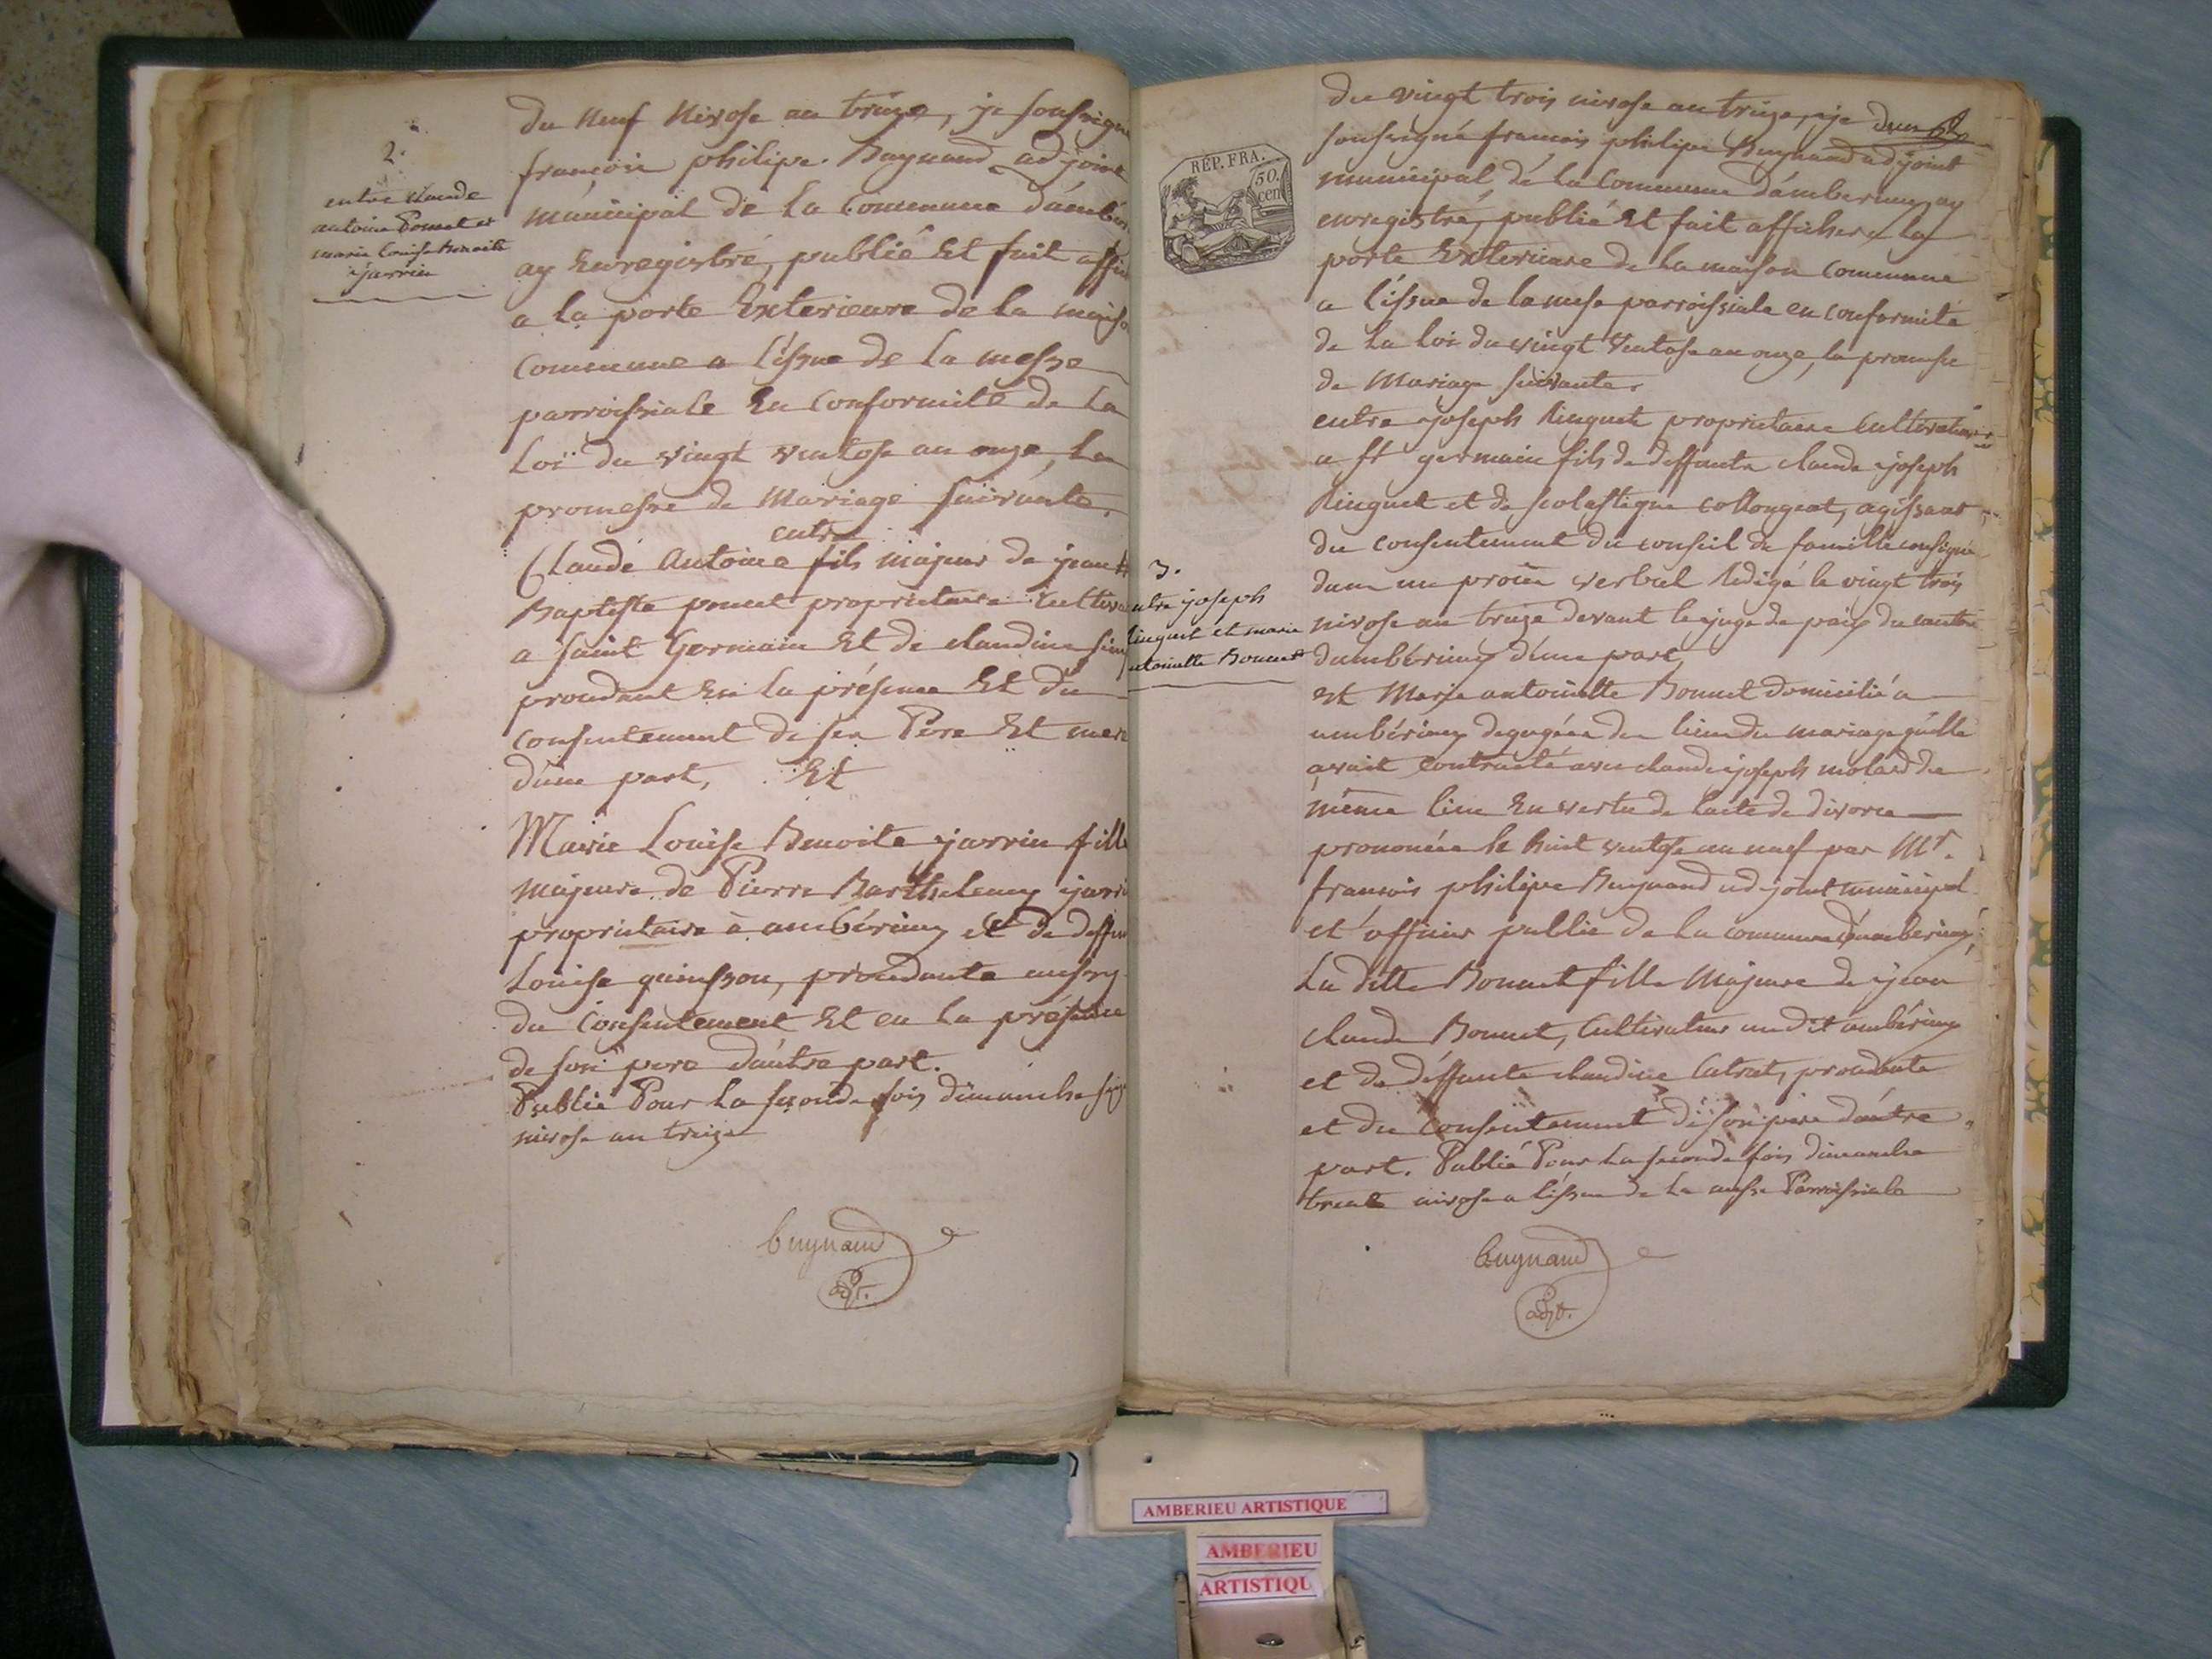 2.
entre claude
antoine Poncet et
marie louise Benoite
jarrin
du neuf Nivose an treize, je soussigné
françois philipe Buynand adjoint
municipal de la Commune d'ambér
ay Enregistré, publié Et fait affic
a la porte Exterieure de la maiso
Commune a l'issue de la messe
parroissiale En Conformité de la
Loi du vingt ventose an onze, la
promesse de Mariage suivante.
entre
Claude Antoine fils majeur de jean
Baptiste poncet proprietaire Cultiva
a saint Germain Et de claudine
procedant En la présence Et du
consentement de ses Pere Et mere
d'une part, Et
Marie Louise Benoite jarrin fille
majeure de Pierre Barthelemy jarri
proprietaire à ambérieux et de deffun
Louise quinsson, procedante aussy
du Consentement Et en la présence
de son pere d'autre part.
Publié Pour la seconde fois dimanche
nivose an treize
buynand
adjt.
RÉP. FRA.
50.
cen
du vingt trois nivose an treize, je
soussigné françois philipe Buynand adjoint
municipal de la Commune d'amberieux ay
enregistré, publié Et fait afficher a la
porte Exterieure de la maison Commune
a l'issue de la messe parroissiale en conformité
de la loi du vingt ventose an onze, la promesse
de Mariage suivante.
3.
ntre joseph
Ringuet et marie
ntoinette Bonnet
entre joseph Ringuet proprietaire Cultivateur
a st germain fils de deffunts claude joseph
Ringuet et de scolastique collongeat, agissant
du consentement du conseil de famille consigné
dans un procès verbal redigé le vingt trois
nivose an treize devant le juge de paix du canton
d'ambérieux d'une part,
et Marie antoinette Bonnet domicilié a
ambérieux degagée des liens du mariage qu'elle
avait contracté avec claude joseph molard du
même lieu En vertu de l'acte de divorce
prononcée le huit ventose an neuf par Mr.
françois philipe Buynand adjoint municipal
et officier public de la commune d'amberieux,
La ditte Bonnet fille Majeure de jean
claude Bonnet, Cultivateur au dit ambérieux
et de deffunte claudine Cutrat, procedante
et du Consentement de son pere d'autre
part. Publié Pour la seconde fois dimanche
trente nivose a l'issue de la messe Parroissiale
buynand
adjt.
AMBERIEU ARTISTIQUE
AMBERIEU
ARTISTIQU